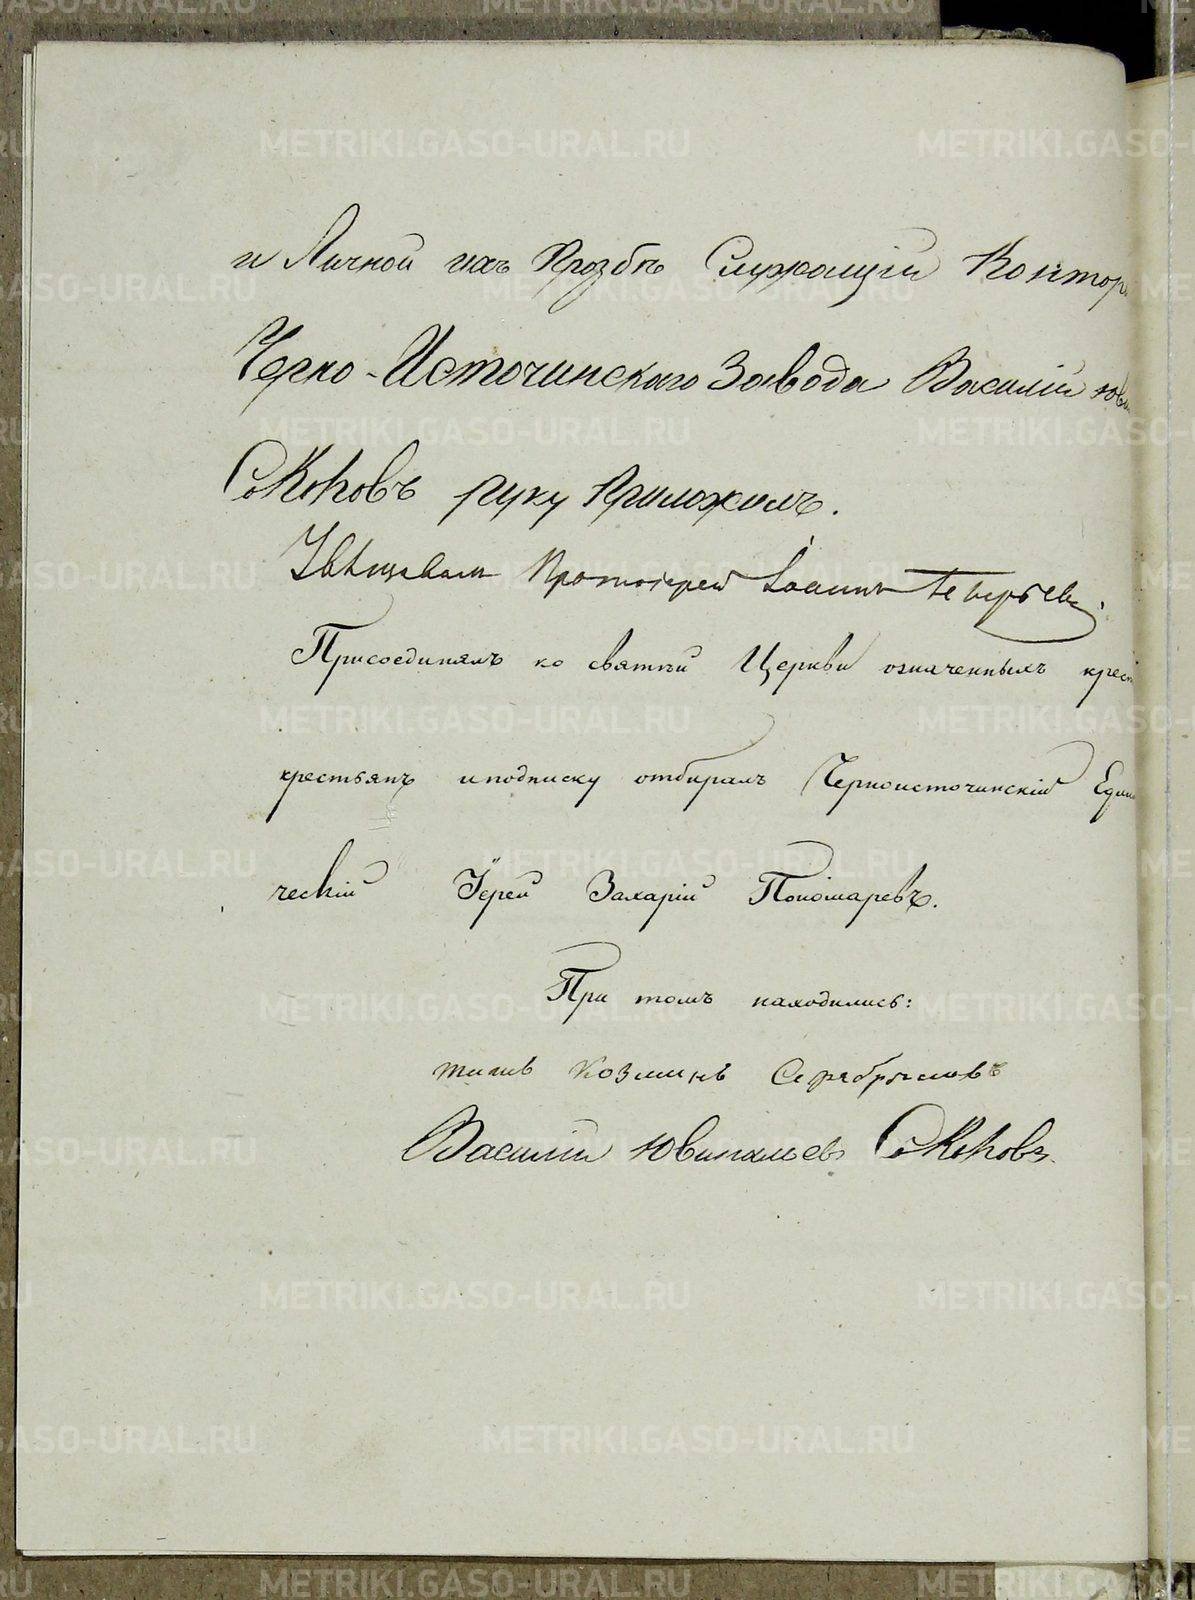 и Личной ихъ Прозбѣ Служащій Контор
Черно-Источинскаго Завода Василій Юви
Соконовъ руку Приложилъ.
Увѣщавалъ Протоіерей Іоаннъ
Присоединялъ ко святѣй Церкви означенныхъ крест
крестьянъ и подписку отбиралъ Черноисточинскій Един
ческій Іерей Захарій Пономаревъ.
При томъ находились:
Козминъ Серебряковъ
Василій Ювинальевъ Соконовъ